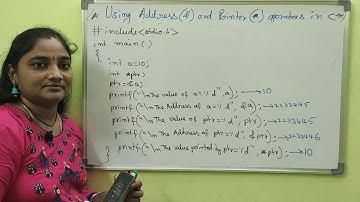 Using Address (&) and Pointer (*) operators in C
#include<stdio.h>
int main()
{
int a=10;
int *ptr;
ptr=&a;
printf("\nThe value of a=%d", a); → 10
printf("\nThe Address of a=%d", &a); → 22334455
printf("\nThe value of ptr=%d", ptr); → 22334455
printf("\nThe Address of ptr=%d", &ptr); → 22334466
printf("\nThe value pointed by ptr=%d", *ptr); → 10
}